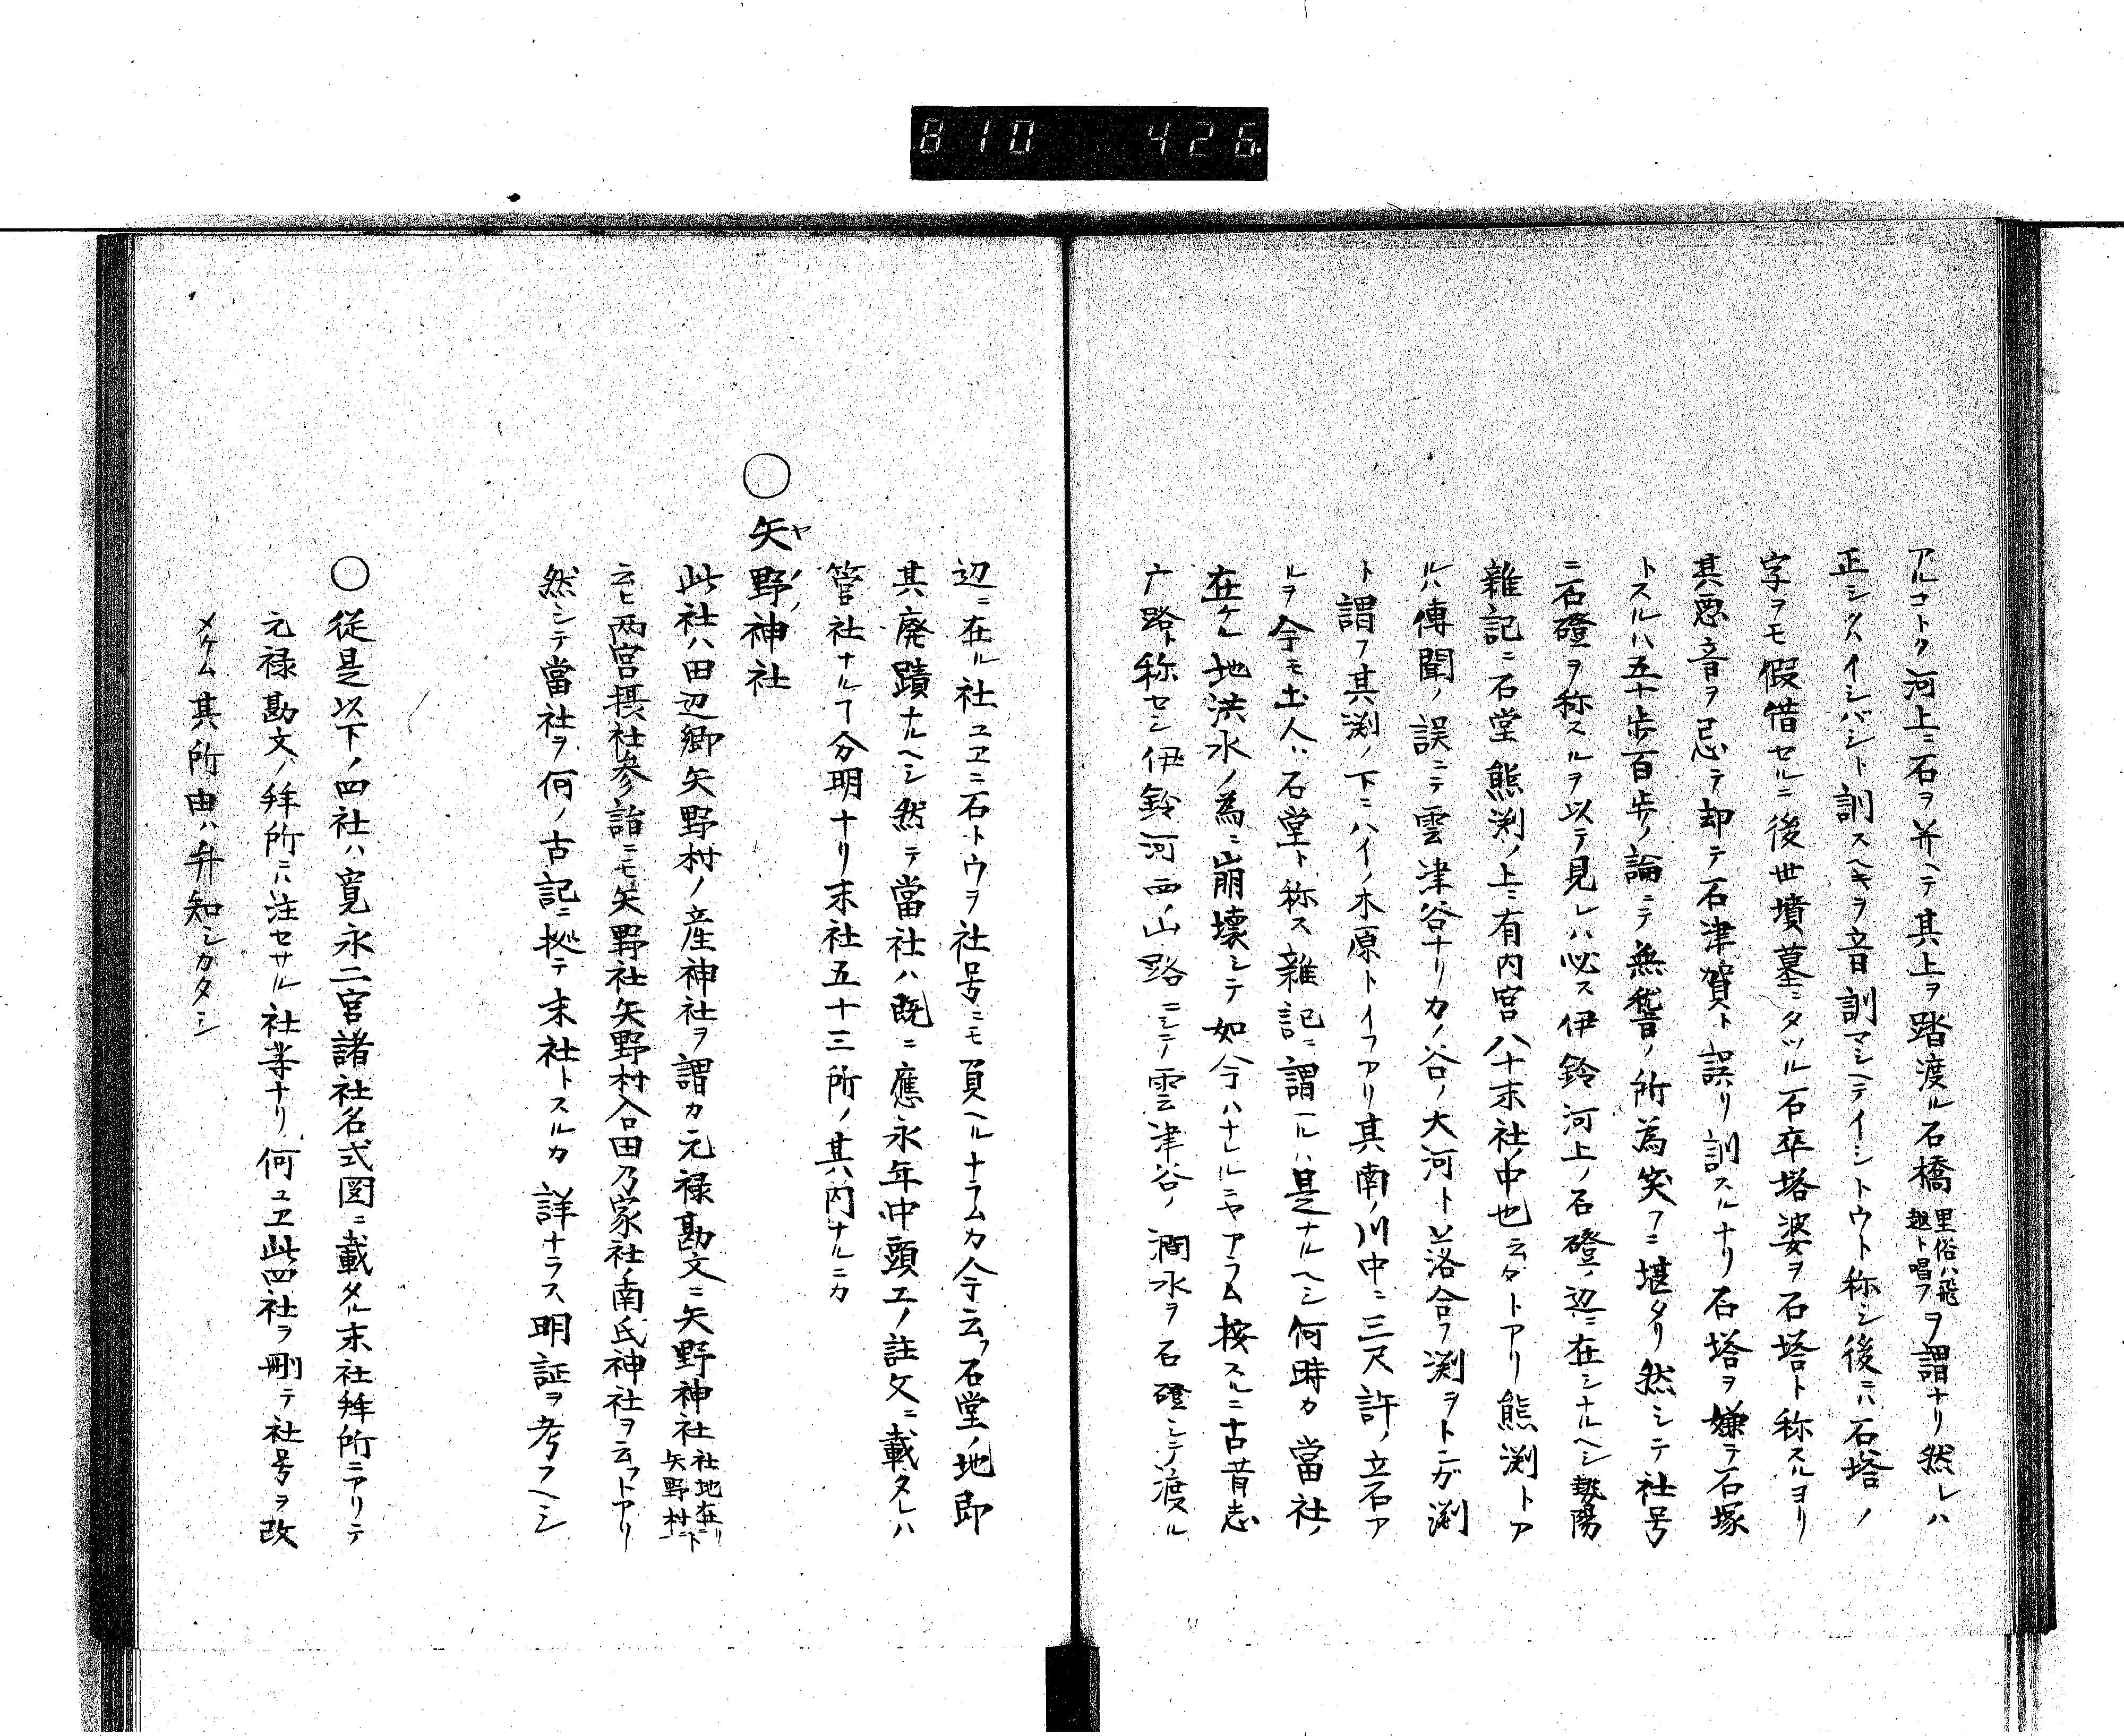 810 426.
アルコトク河上ニ石ヲ並ヘテ其上ヲ踏渡ル石橋里俗ハ飛越ト唱フヲ謂ナリ然レハ
正シクハイシバシト訓スヘキヲ音訓マシヘテイシトウト称シ後ニハ石塔ノ
字ヲモ假借セルニ後世墳墓ニタツル石卒塔婆ヲ石塔ト称スルヨリ
其悪音ヲ忌テ却テ石津賀ト誤リ訓スルナリ石塔ヲ嫌テ石塚
トスルハ五十歩百歩ノ論ニテ無稽ノ所為笑フニ堪タリ然シテ社号
ニ石磴ヲ称スルヲ以テ見レハ必ス伊鈴河上ノ石磴ノ辺ニ在シナルヘシ勢陽
雜記ニ石堂熊渕ノ上ニ有内宮八十末社ノ中也云々トアリ熊渕トア
ルハ傳聞ノ誤ニテ雲津谷ナリカノ谷ノ大河ト落合フ渕ヲトニガ渕
ト謂フ其渕ノ下ニハイノ木原トイフアリ其南ノ川中ニ三尺許ノ立石ア
ルヲ今モ土人ハ石堂ト称ス雜記ニ謂ヘルハ是ナルヘシ何時カ當社ノ
在ケル地洪水ノ為ニ崩壊シテ如今ハナレルニヤアラム按スルニ古昔志
广路ト称セシ伊鈴河西ノ山路ニシテ雲津谷ノ澗水ヲ石磴シテ渡ル
辺ニ在ル社ユヱニ石トウヲ社号ニモ負ヘルナラムカ今云フ石堂ノ地即
其廃蹟ナルヘシ然テ當社ハ既ニ應永年中頭工ノ註文ニ載タレハ
管社ナルヿ分明ナリ末社五十三所ノ其内ナルニカ
○矢野神社
ヤノ
此社ハ田辺郷矢野村ノ産神社ヲ謂カ元禄勘文ニ矢野神社社地在リ矢野村ニト
云ヒ両宮摂社参詣ニモ矢野社矢野村合田乃家社ノ南氏神社ヲ云フトアリ
然シテ當社ヲ何ノ古記ニ拠テ末社トスルカ詳ナラス明証ヲ考フヘシ
○従是以下ノ四社ハ寛永二宮諸社名式図ニ載タル末社拜所ニアリテ
元禄勘文ノ拜所ニハ注セサル社等ナリ何ユヱ此四社ヲ刪テ社号ヲ改
メケム其所由ハ弁知シカタシ